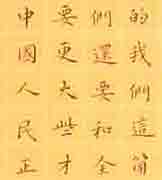 的我們這箇
們還要和全
要更大些才
中國人民正